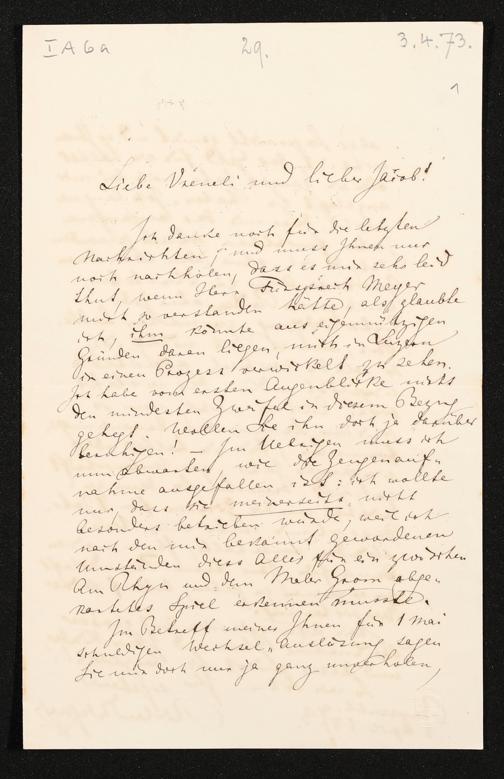 I A 6a 29. 3.4.73.
1
Liebe Vreneli und lieber Jacob!
Ich danke noch für die letzten
Nachrichten, und muss Ihnen nur
noch nachholen, dass es mir sehr leid
thut, wenn Herr Fürsprech Meyer
mich so verstanden hätte, als glaubte
ich, ihm könnte aus eigennützigen
Gründen daran liegen, mich in Luzern
in einen Prozess verwickelt zu sehen.
Ich habe vom ersten Augenblicke nicht
den mindesten Zweifel in diesem Bezug
gehegt. Wollen Sie ihn doch ja darüber
beruhigen! – Im Uebrigen muss ich
nun abwarten, wie die Zeugenauf-
nahme ausgefallen ist: ich wollte
nur, dass sie meinerseits nicht
besonders betrieben würde, weil ich
nach den mir bekannt gewordenen
Umständen diess Alles für ein zwischen
Am Rhyn und dem Maler Zrorn abge-
kartetes Spiel erkennen musste.
Im Betreff meiner Ihnen für 1 Mai
schuldigen Wechsel-auslösung sagen
Sie mir doch nur ja ganz unverholen,